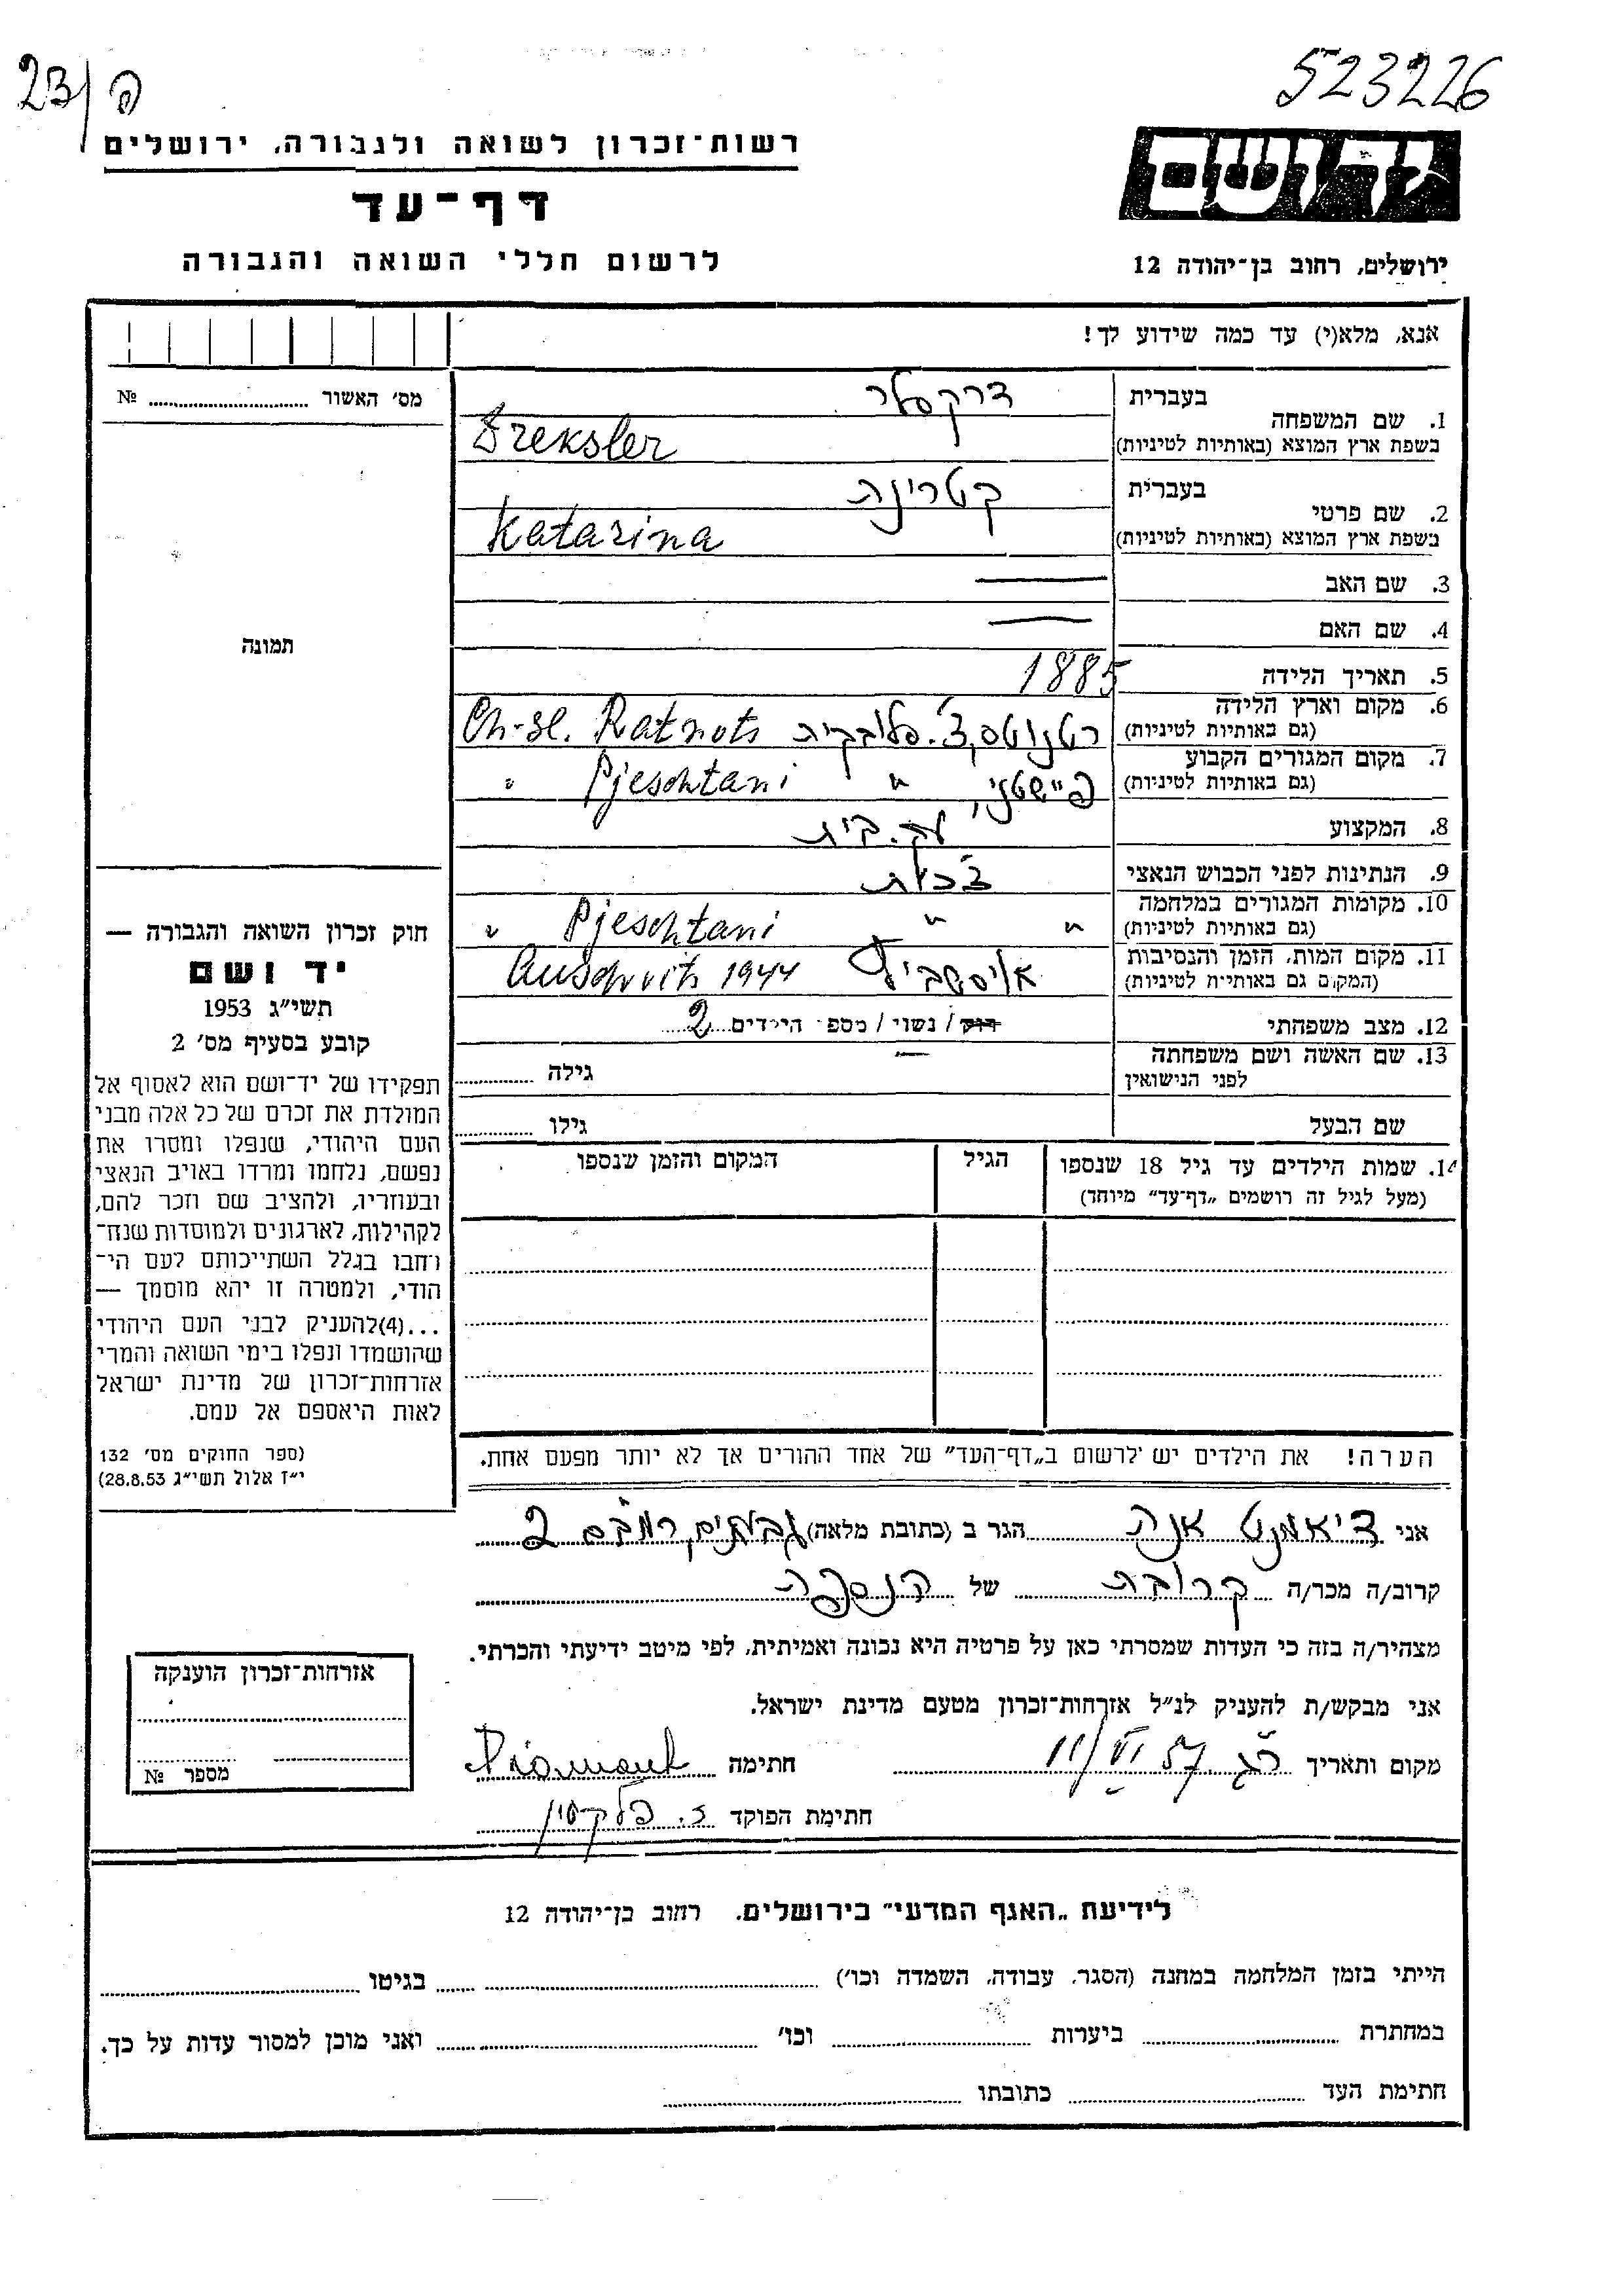 23/ פ
523226
רשות־זכרון לשואה ולגבורה, ירושלים
דף־עד
לרשום חללי השואה והגבורה
יד ושם
ירושלים, רחוב בן־יהודה 12
אנא, מלא(י) עד כמה שידוע לך!
מס׳ האשור ........ №
תמונה
1. שם המשפחה
בעברית דרקסלר
בשפת ארץ המוצא (באותיות לטיניות) Dreksler
2. שם פרטי
בעברית קטרינה
בשפת ארץ המוצא (באותיות לטיניות) Katarina
3. שם האב —
4. שם האם —
5. תאריך הלידה 1885
6. מקום וארץ הלידה
(גם באותיות לטיניות) רטנוטס, צ׳. סלובקיה Ch-sl. Ratnots
7. מקום המגורים הקבוע
(גם באותיות לטיניות) פיישטני, " Pjeschtani "
8. המקצוע עק. בית
9. הנתינות לפני הכבוש הנאצי צ׳כית
10. מקומות המגורים במלחמה
(גם באותיות לטיניות) " " Pjeschtani "
11. מקום המות, הזמן והנסיבות
(המקום גם באותיות לטיניות) אוישביץ Auschvits 1944
12. מצב משפחתי רוק / נשוי / מספר הילדים 2
13. שם האשה ושם משפחתה — גילה
לפני הנישואין
שם הבעל גילו
14. שמות הילדים עד גיל 18 שנספו הגיל המקום והזמן שנספו
(מעל לגיל זה רושמים „דף־עד״ מיוחד)
הערה! את הילדים יש לרשום ב„דף־העד״ של אחד ההורים אך לא יותר מפעם אחת.
חוק זכרון השואה והגבורה —
יד ושם
תשי״ג 1953
קובע בסעיף מס׳ 2
תפקידו של יד־ושם הוא לאסוף אל
המולדת את זכרם של כל אלה מבני
העם היהודי, שנפלו ומסרו את
נפשם, נלחמו ומרדו באויב הנאצי
ובעוזריו, ולהציב שם וזכר להם,
לקהילות, לארגונים ולמוסדות שנח־
רחבו בגלל השתייכותם לעם הי־
הודי, ולמטרה זו יהא מוסמך —
...(4)להעניק לבני העם היהודי
שהושמדו ונפלו בימי השואה והמרי
אזרחות־זכרון של מדינת ישראל
לאות היאספם אל עמם.
(ספר החוקים מס׳ 132
י״ז אלול תשי״ג 28.8.53)
אני דיאמנט אנה הגר ב (כתובת מלאה) גבעתיים רמב״ם 2
קרוב/ה מכר/ה קרובה של הנספה
מצהיר/ה בזה כי העדות שמסרתי כאן על פרטיה היא נכונה ואמיתית, לפי מיטב ידיעתי והכרתי.
אני מבקש/ת להעניק לנ״ל אזרחות־זכרון מטעם מדינת ישראל.
מקום ותאריך רג 11/VI 57 חתימה Diamant
חתימת הפוקד ז. פלקסין
אזרחות־זכרון הוענקה
מספר №
לידיעת „האגף המדעי״ בירושלים. רחוב בן־יהודה 12
הייתי בזמן המלחמה במחנה (הסגר, עבודה, השמדה וכו׳) ........ בגיטו ........
במחתרת ........ ביערות ........ וכו׳ ........ ואני מוכן למסור עדות על כך.
חתימת העד ........ כתובתו ........